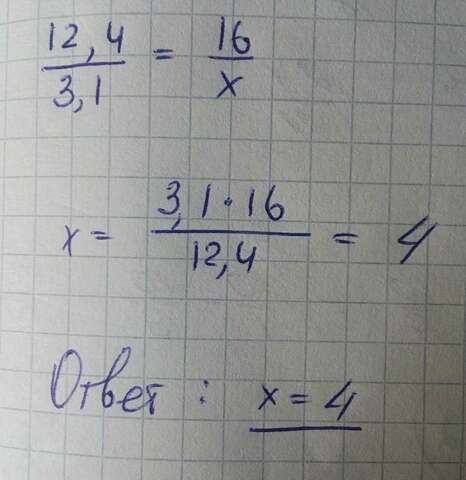 12,4/3,1 = 16/x
x = 3,1·16/12,4 = 4
Ответ : x = 4